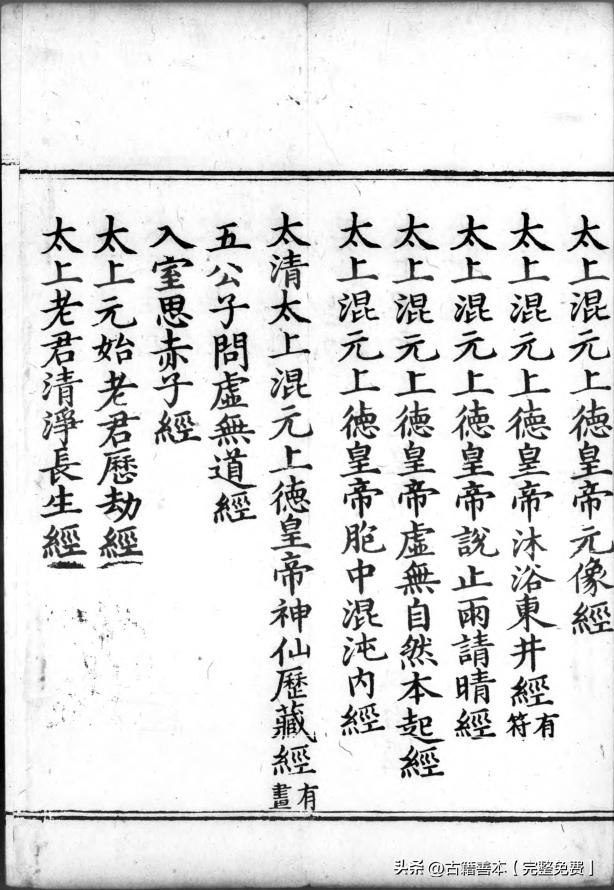 太上混元上德皇帝元像經
太上混元上德皇帝沐浴東井經有符
太上混元上德皇帝說止雨請晴經
太上混元上德皇帝虛無自然本起經
太上混元上德皇帝胞中混沌內經
太清太上混元上德皇帝神仙歷藏經有畫
五公子問虛無道經
入室思赤子經
太上元始老君歷劫經
太上老君清淨長生經
头条 @古籍善本（完整免费）